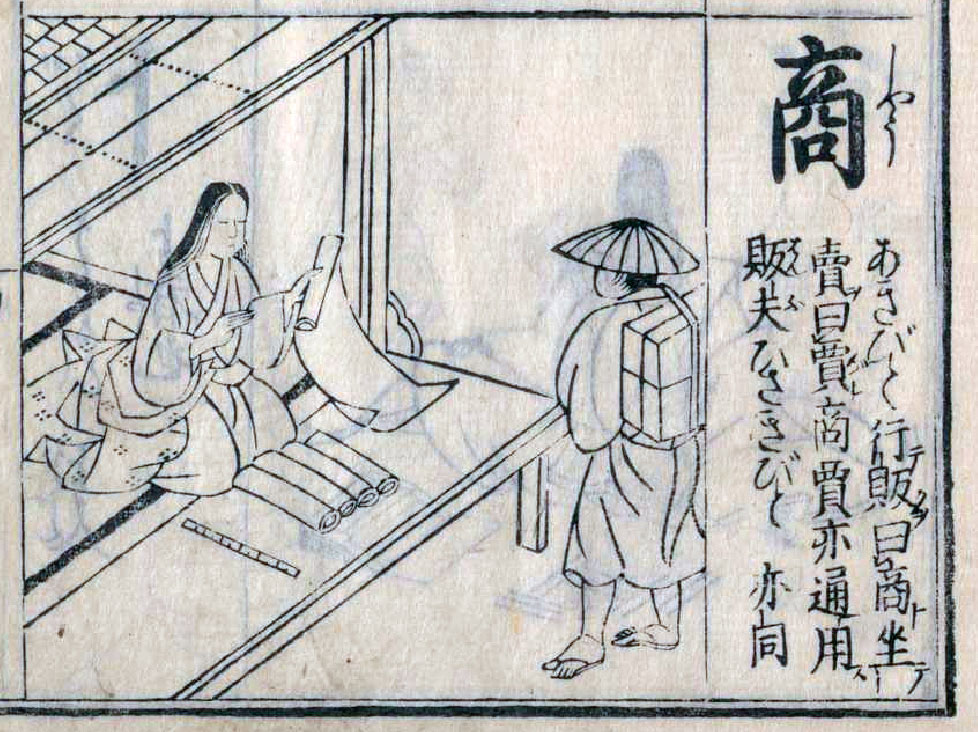 商
しやう
あきびと行販曰商坐
賣曰賈商賈亦通用
販夫ひさきびと 亦同